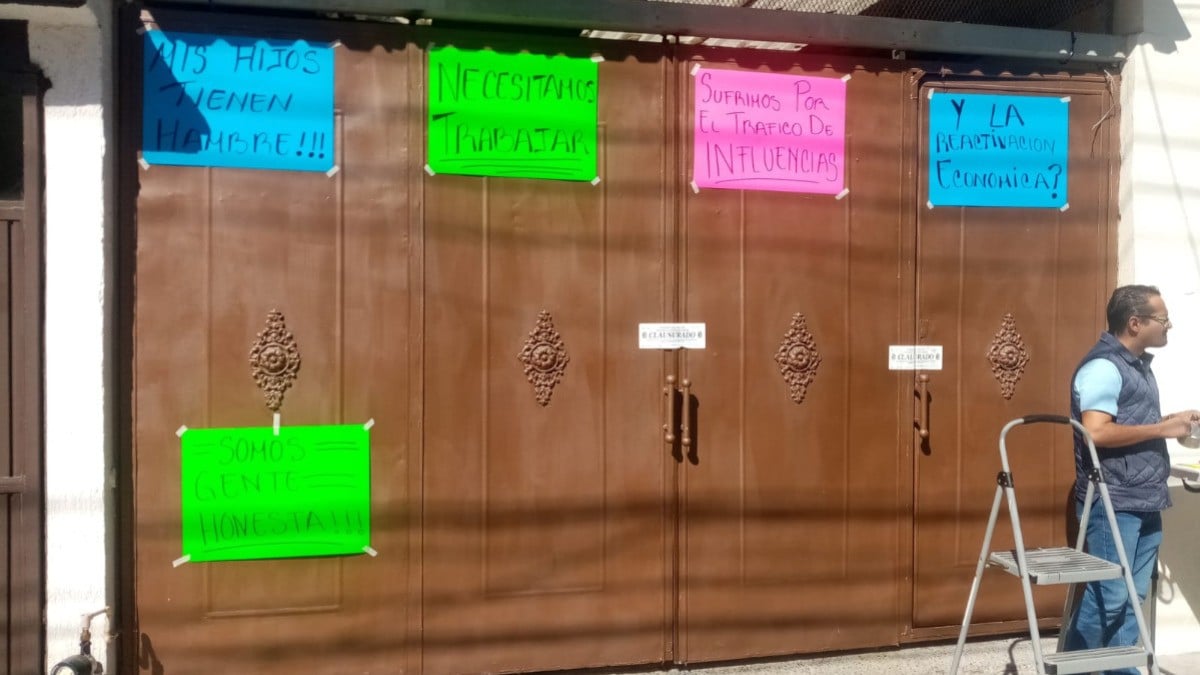 MIS HIJOS
TIENEN
HAMBRE!!!
NECESITAMOS
TRABAJAR
SUFRIMOS POR
EL TRAFICO DE
INFLUENCIAS
Y LA
REACTIVACION
ECONOMICA?
CLAUSURADO
CLAUSURADO
=SOMOS=
GENTE=
HONESTA!!!